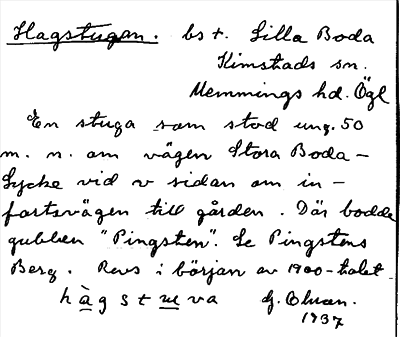 Hagstugan. bst. Lilla Boda
Kimstads sn.
Memmings hd. Ögl
En stuga som stod ung. 50
m. n. om vägen Stora Boda -
Lycke vid v sidan om in -
fartsvägen till gården. Där bodde
gubben "Pingsten". Se Pingstens
Berg. Revs i början av 1900-talet.
hàgstuva G. Olson.
1937